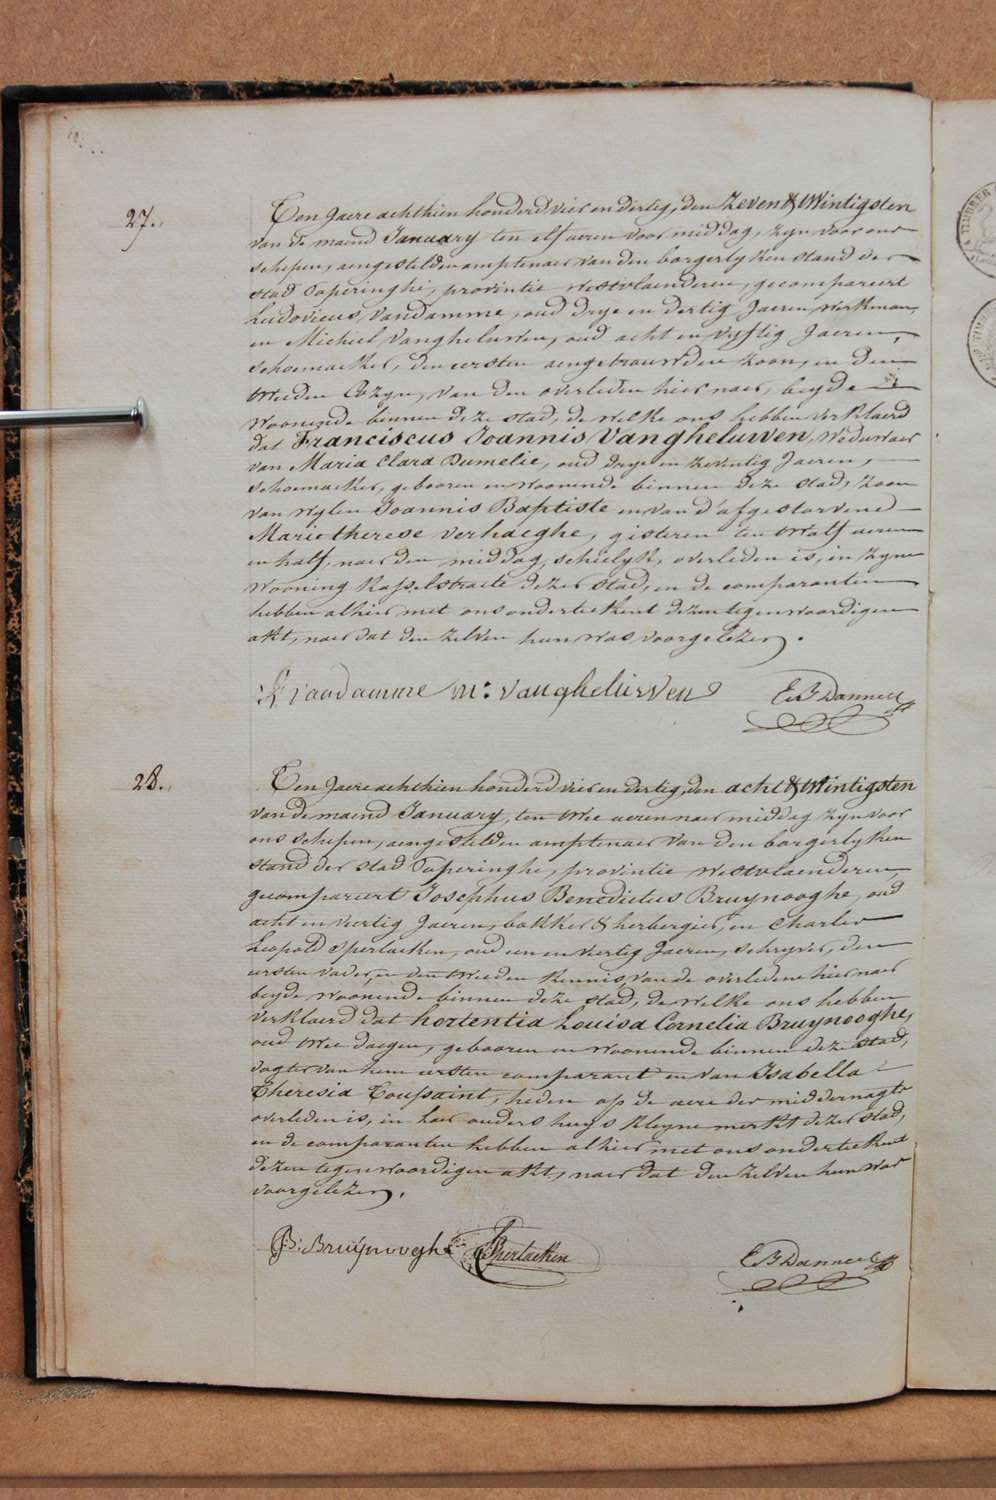 27.
Ten Jaere achthien honderd vier en dertig, den zeven & twintigsten
van de maend January ten elf ueren voor middag, zyn voor ons
schepen, aengestelden amptenaer van den borgerlyken stand der
stad Poperinghe, provintie westvlaenderen, gecompareert
Ludovicus Vandamme, oud drye en dertig Jaeren, werkman,
en Michiel Vangheluwen, oud acht en vyftig Jaeren,
schoemaeker, den eersten aengetrouwden zoon, en den
tweeden Cozyn, van den overleden hier naer, beyde
woonende binnen deze stad, de welke ons hebben verklaerd
dat Franciscus Joannis Vangheluwen, weduwaer
van Maria Clara Dumelie, oud drye en zeventig Jaeren,
schoemaeker, gebooren en woonende binnen deze stad, zoon
van wylen Joannis Baptiste en van d'afgestorvene
Marie therese verhaeghe, gisteren ten twalf ueren
en half, naer den middag, schielyk, overleden is, in zyne
wooning Kasselstraete dezer stad, en de comparanten
hebben alhier met ons onderteekent dezen tegenwoordigen
akt, naer dat den zelven hun was voorgelezen.
L Vandamme m: vangheluwen E. B Dannell
28.
Ten Jaere achthien honderd vier en dertig, den acht & twintigsten
van de maend January, ten twee ueren naer middag zyn voor
ons schepen, aengestelden amptenaer van den borgerlyken
stand der stad Poperinghe, provintie westvlaenderen,
gecompareert Josephus Benedictus Bruynooghe, oud
acht en viertig Jaeren, bakker & herbergier, en Charles
Leopold Sperlaeken, oud een en viertig Jaeren, schryver, den
eersten vader, en den tweeden kennis, van de overledene hier naer
beyde woonende binnen deze stad, de welke ons hebben
verklaerd dat hortentia Louisa Cornelia Bruynooghe,
oud twee daegen, gebooren en woonende binnen deze stad,
dogter van hem eersten comparant en van Isabella
Theresia Toussaint, heden op de uere der middernagt
overleden is, in haer ouders huys kleyne merkt dezer stad,
en de comparanten hebben alhier met ons onderteekent
dezen tegenwoordigen akt, naer dat den zelven hun was
voorgelezen.
B: Bruÿnooghe Sperlaeken E B Dannell